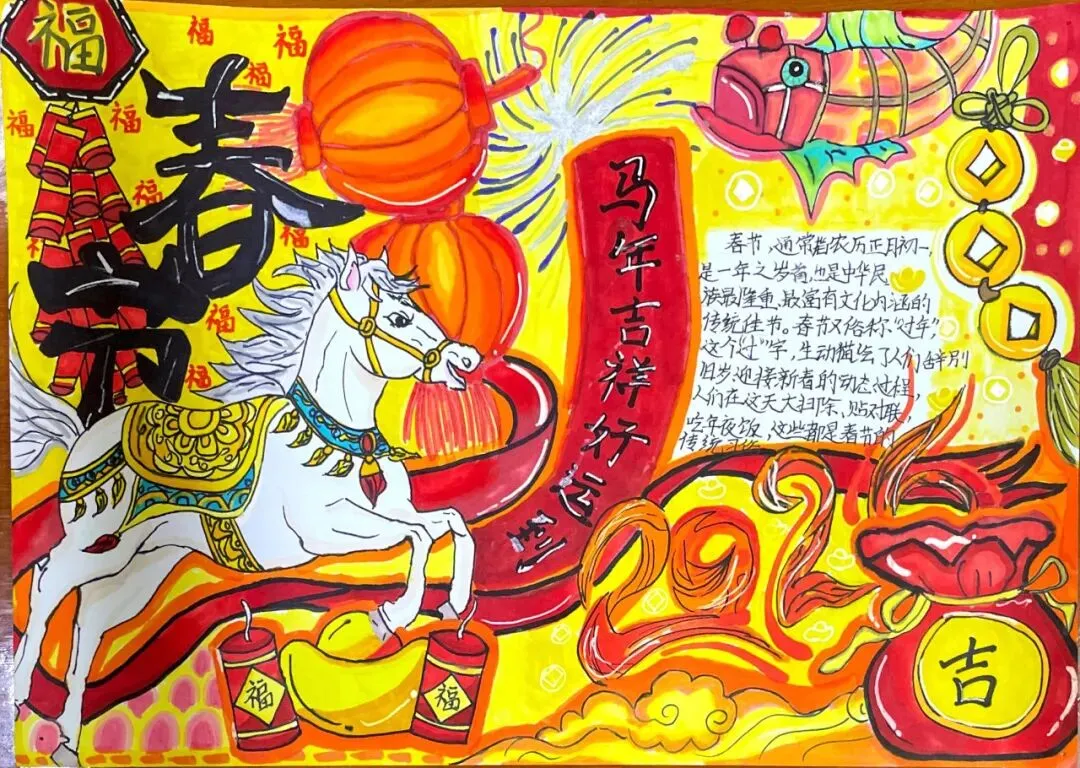 福
福
福
福
福
福
福
福
福
福
春节
马年吉祥行运
春节,通常指农历正月初一,
是一年之岁首,也是中华民
族最隆重,最富有文化内涵的
传统佳节。春节又俗称“过年”,
这个“过”字,生动描绘了人们辞别
旧岁迎接新春的动态过程,
人们在这天大扫除,贴对联,
吃年夜饭,这些都是春节的
传统习俗
2026
福
福
吉